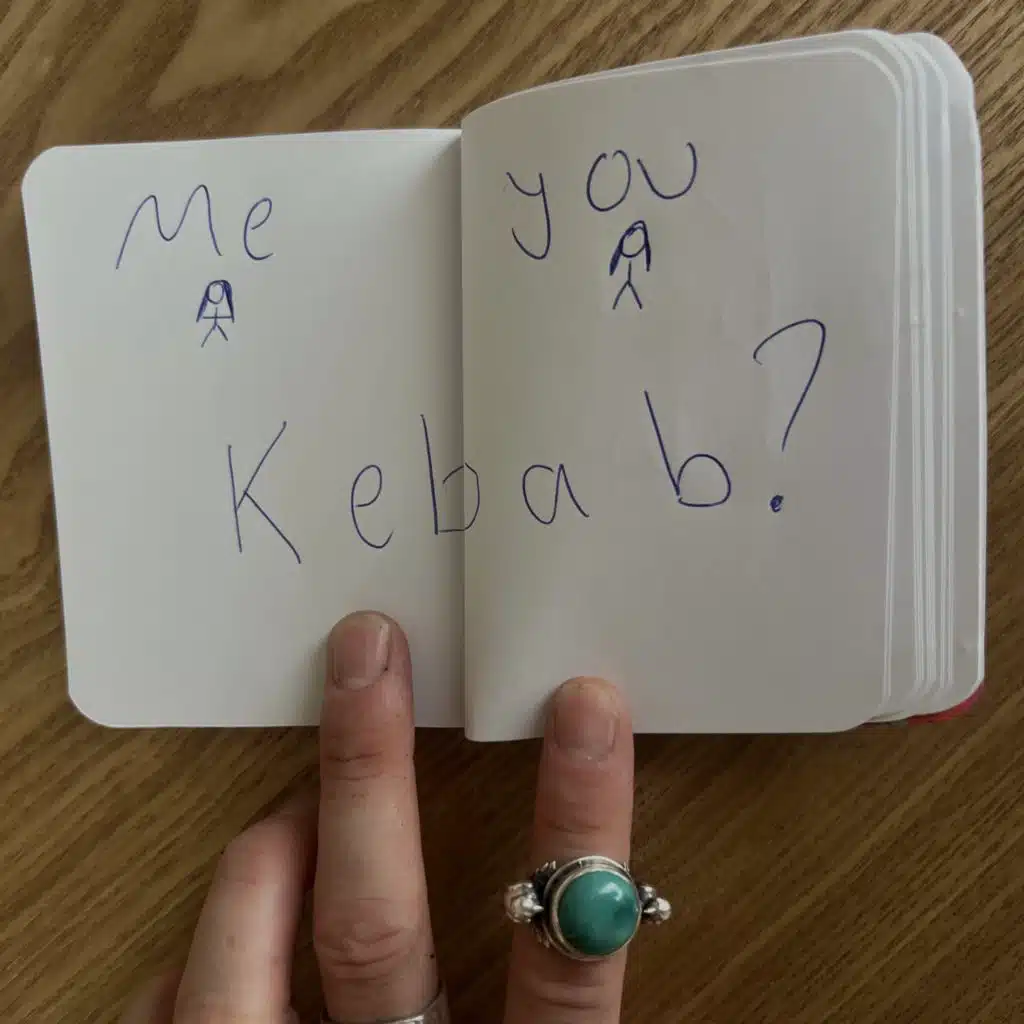 Me you
Kebab?